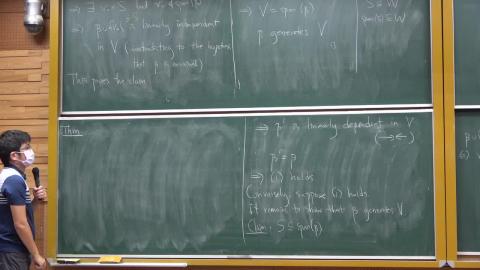 ⇒ ∃ v ∈ S but v ∉ span(β)
⇒ β ∪ {v} is linearly independent
in V (contradicting to the hypothesis
that β is maximal)
This proves the claim
⇒ V = span(β)
β generates V
S ⊆ W
span(S) ⊆ W
Thm
⇒ β' is linearly dependent in V
(→←)
β' = β
⇒ (i) holds
Conversely, suppose (i) holds.
It remains to show that β generates V
Claim: S ⊆ span(β)